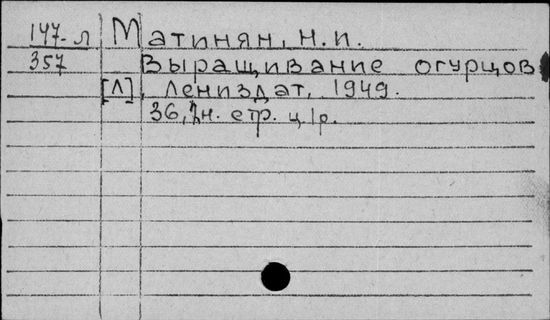 147-л Матинян, Н.И.
357 Выращивание огурцов
[Л], Лениздат, 1949.
36, н. стр. ц 1р.